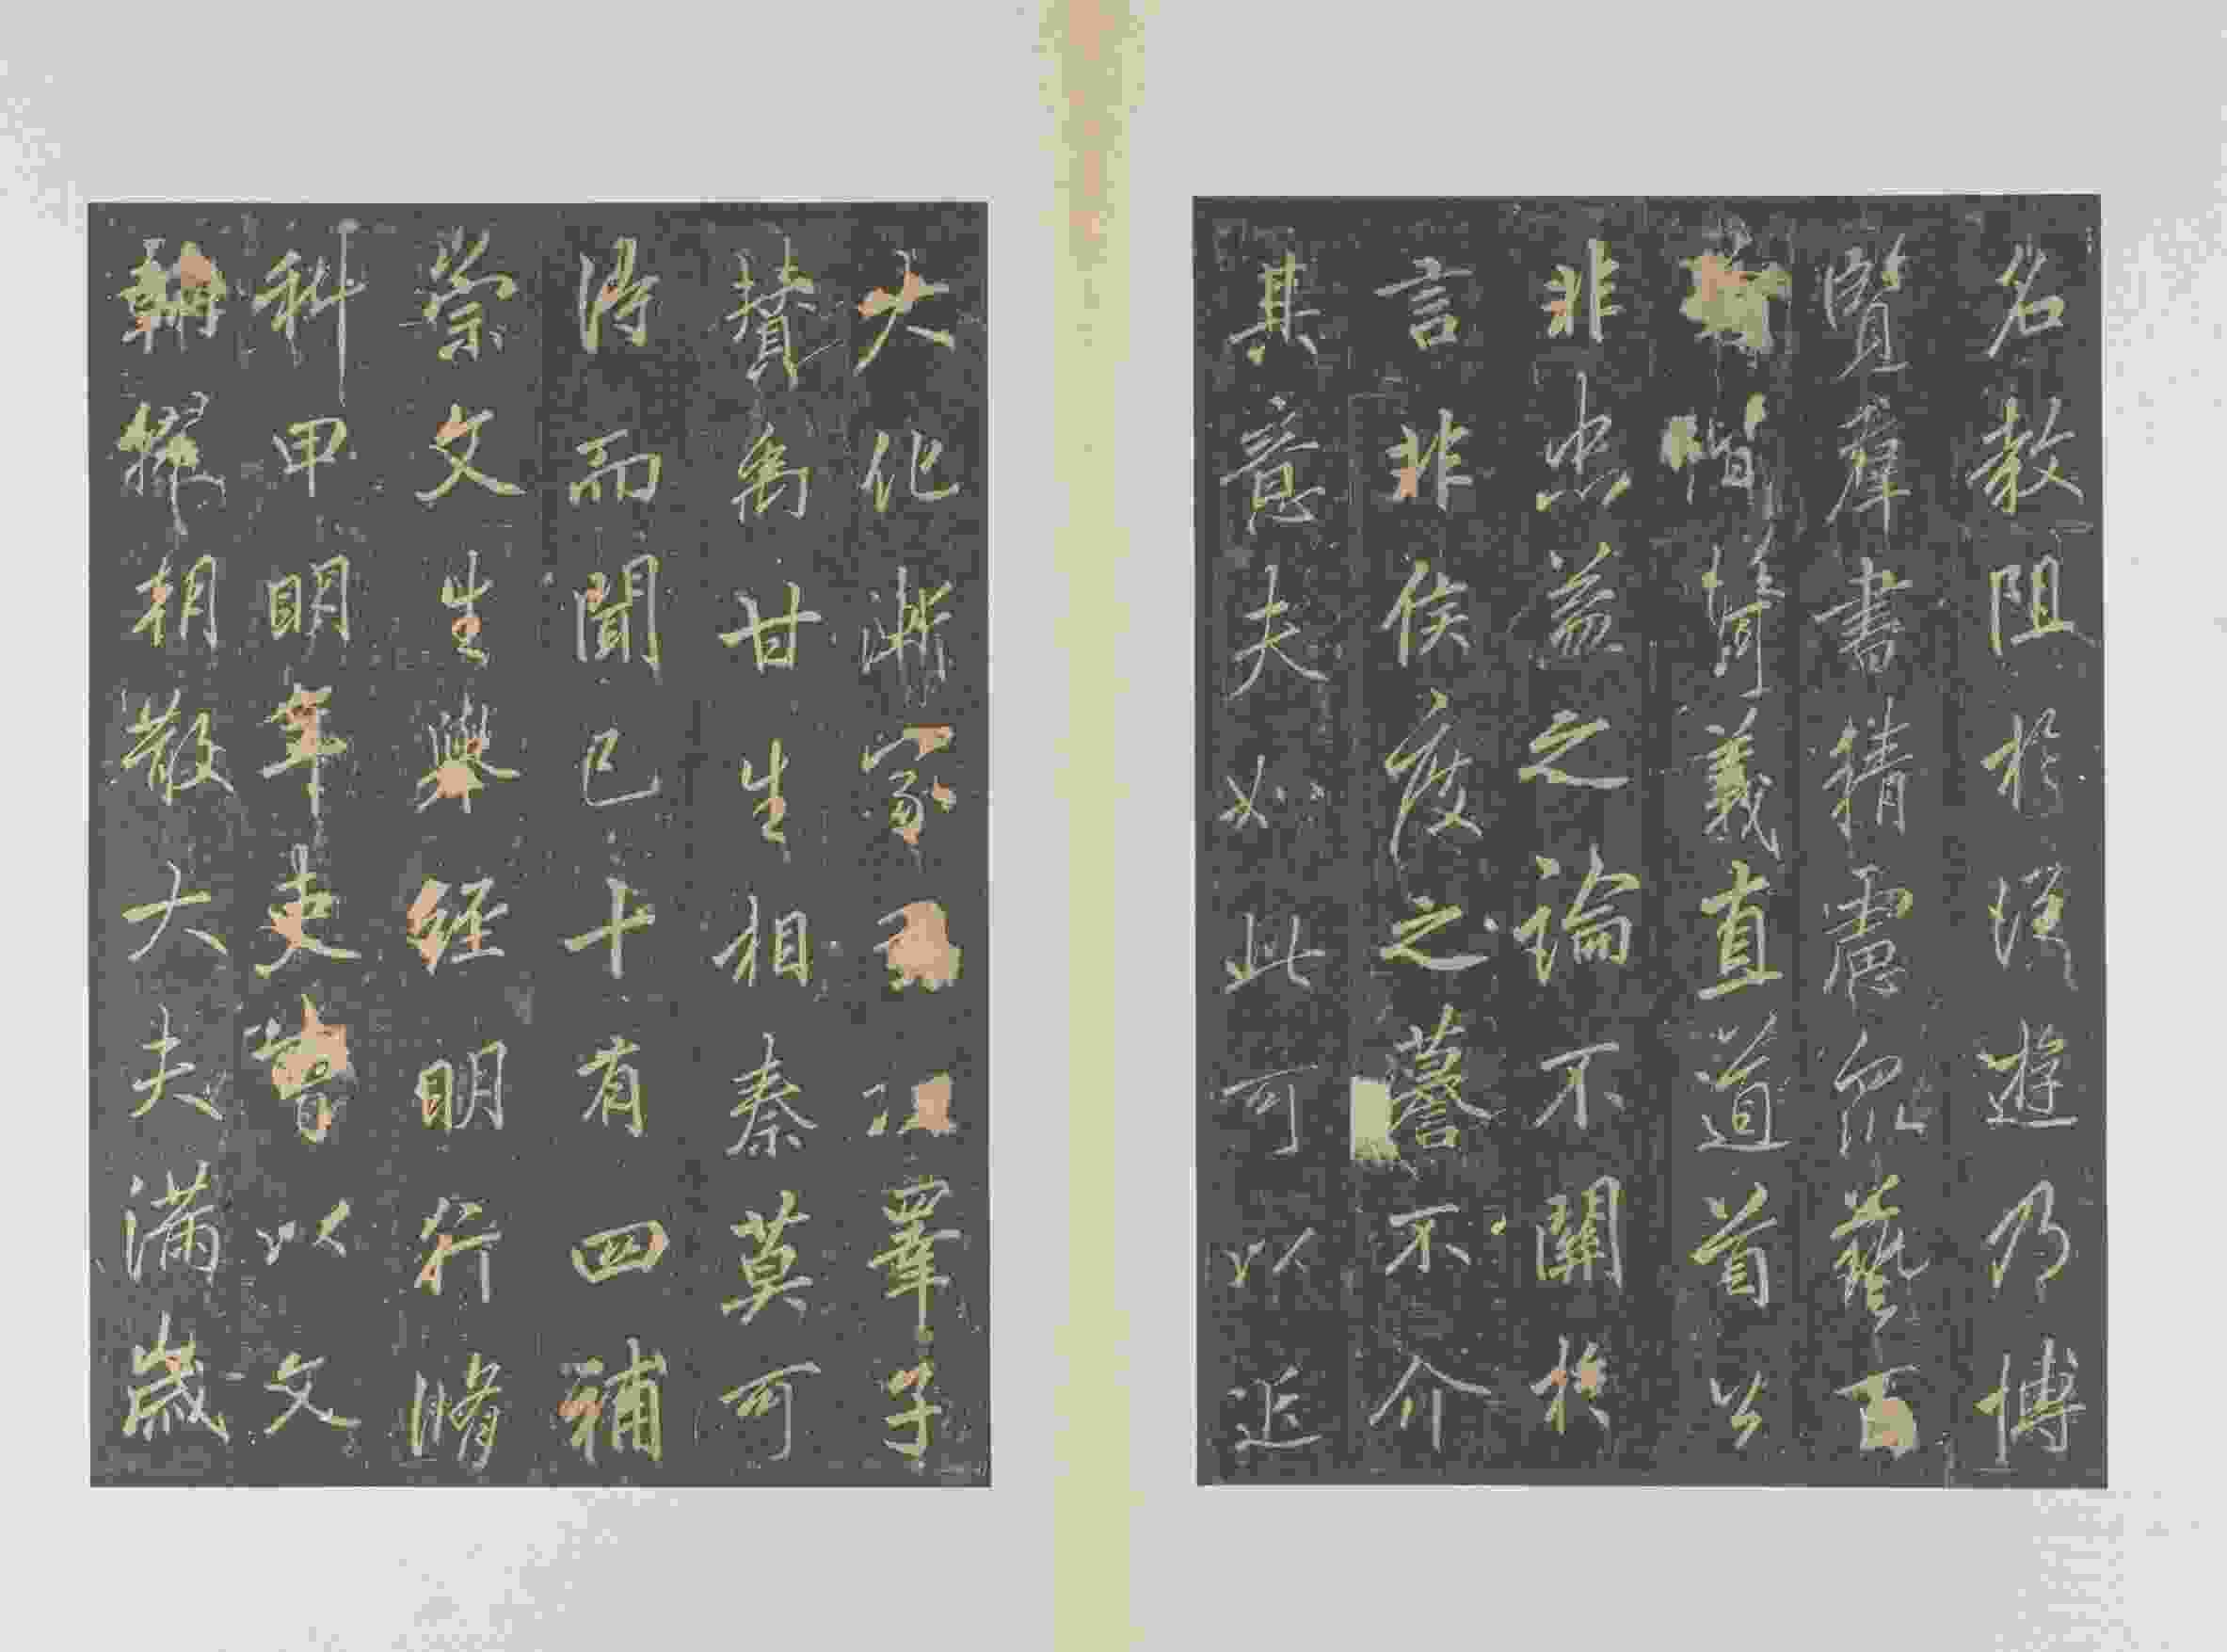 名教阻於從遊乃博
覽羣書精慮衆藝百
義直道首公
非忠益之論不關於
言非侯度之謩不介
其意夫如此可以近
大化漸家睾子
贊禹甘生相秦莫可
得而聞已十有四補
崇文生舉經明行脩
科甲明年吏曹以文
翰擢朝散大夫滿歲